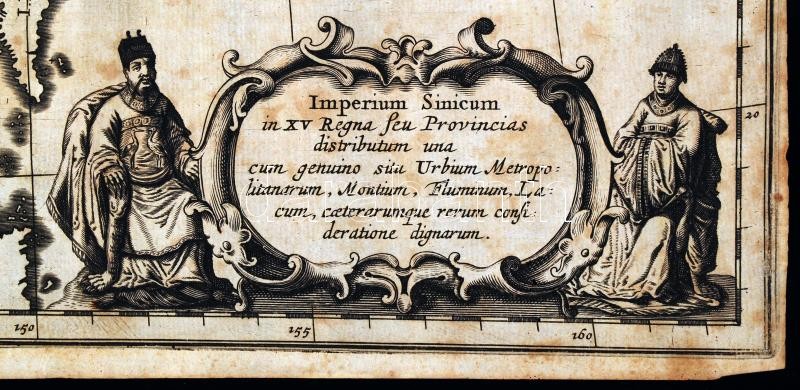 Imperium Sinicum
in XV Regna seu Provincias
distributum una
cum genuino situ Urbium Metropo=
litanarum, Montium, Fluminum, La=
cum, cæterarumque rerum consi=
deratione dignarum.
20
150
155
160